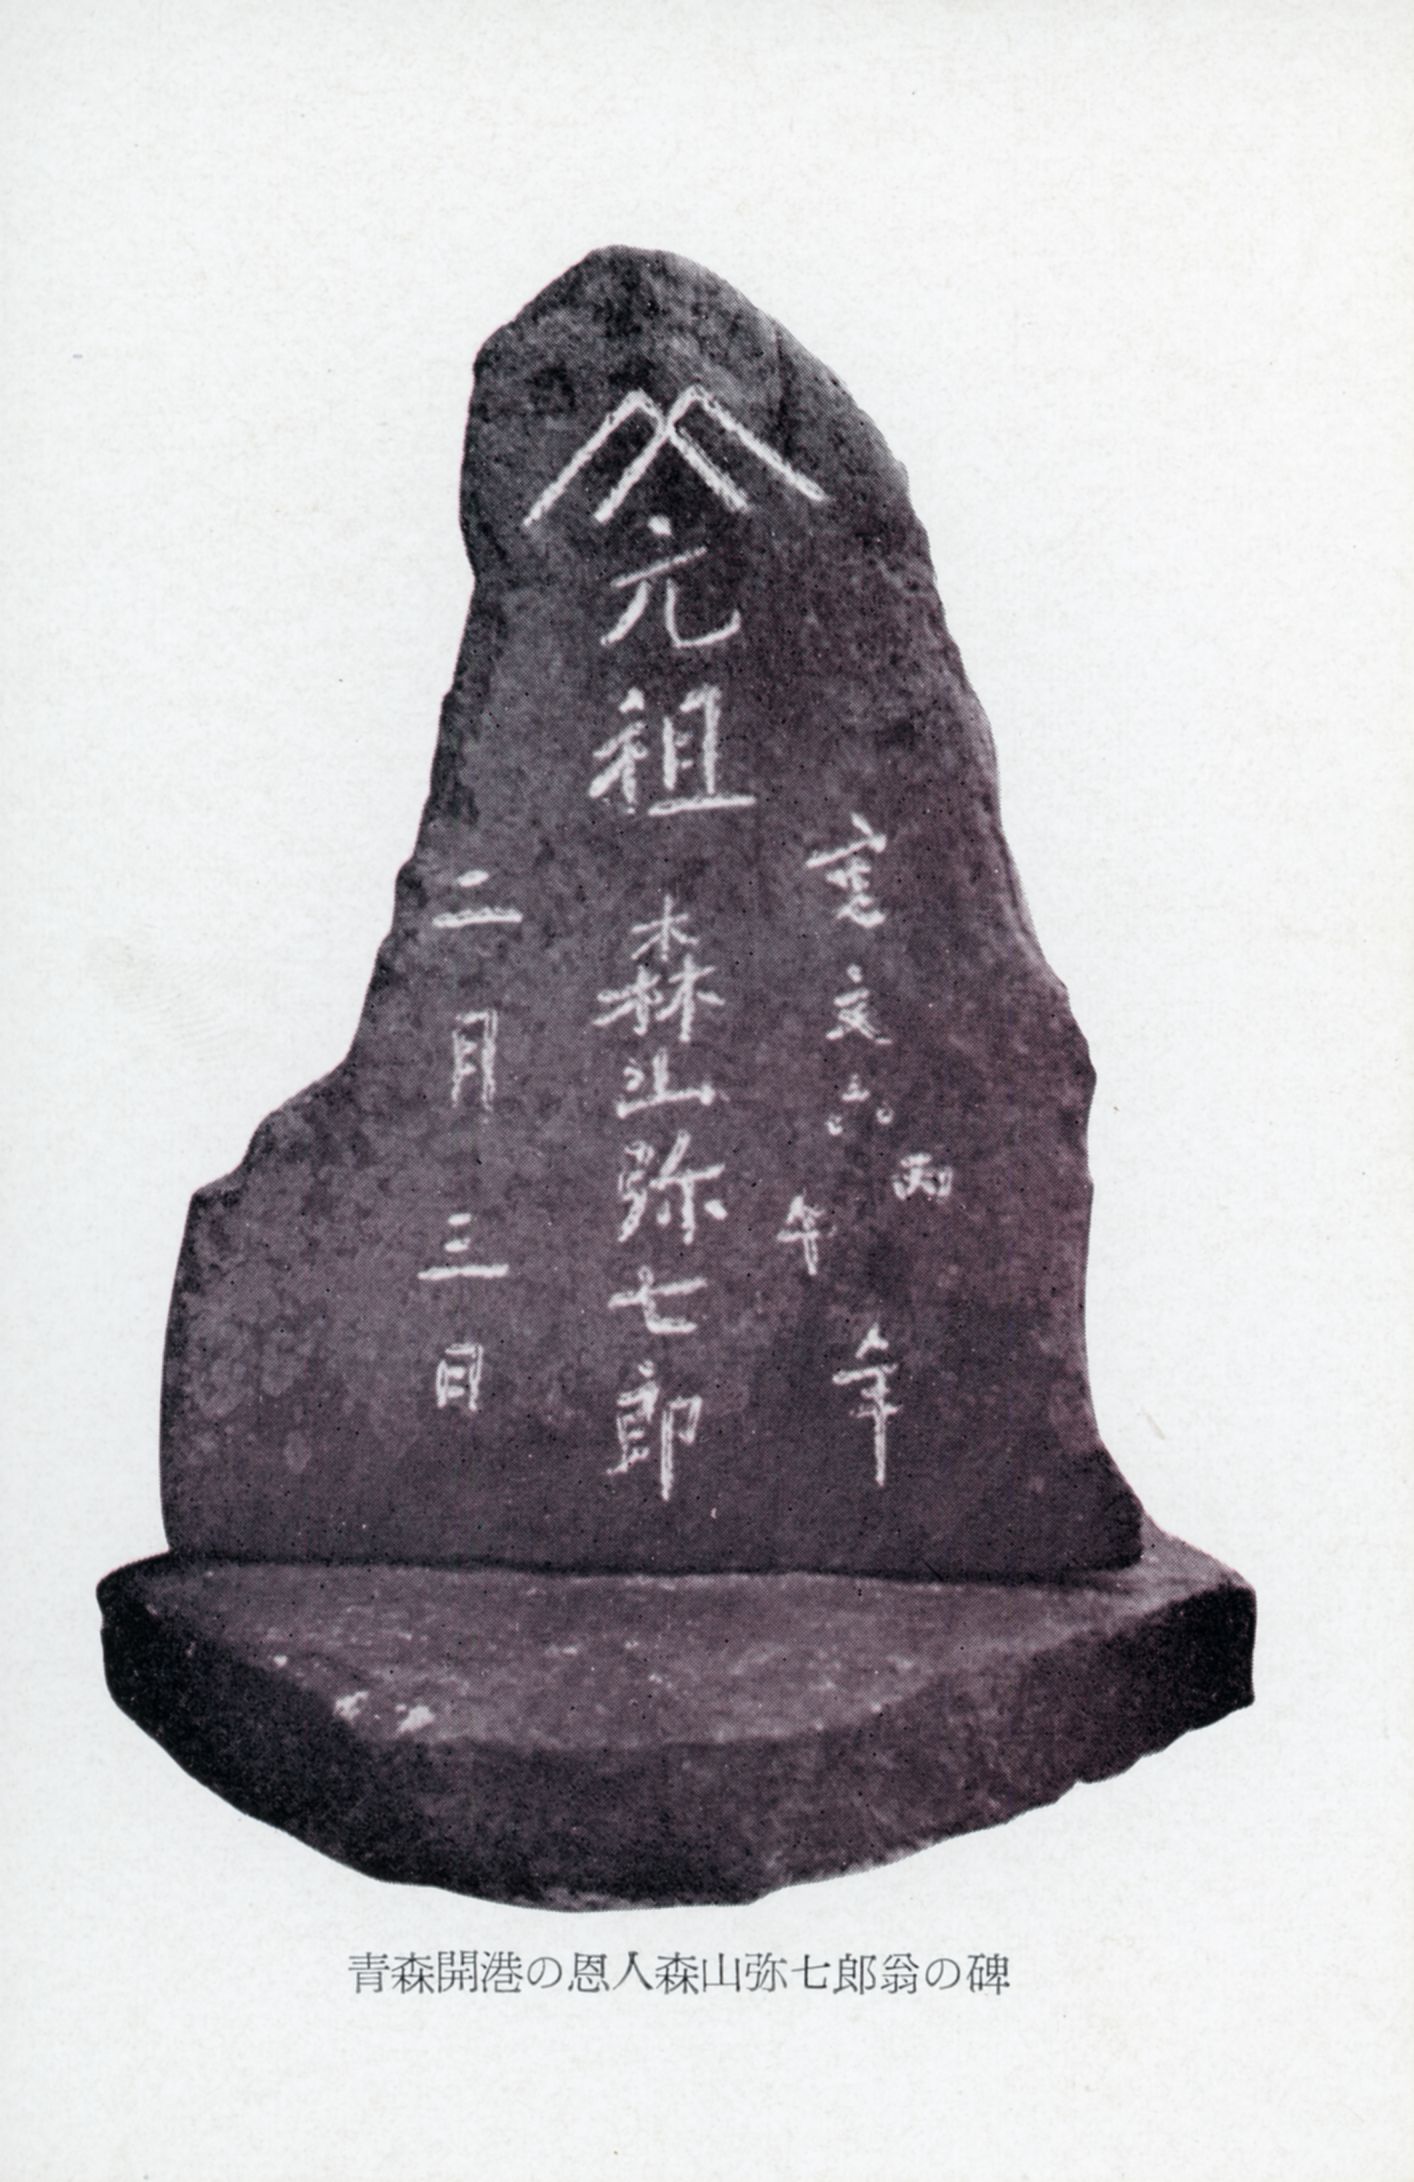 寛文六丙午年
元祖 森山弥七郎
二月三日
青森開港の恩人森山弥七郎翁の碑